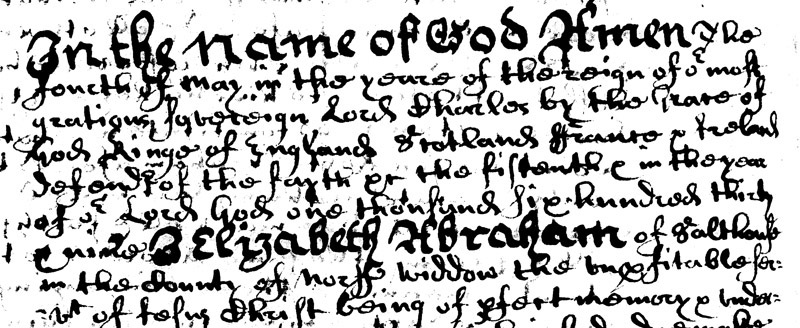 In the Name of God Amen The
fourth of May in the yeare of the reign of or most
gratious Sovereign Lord Charles by the Grace of
God Kinge of England Scotland France & Ireland
defendr of the fayth &c the fifteenth & in the year
of or Lord God one thousand six hundred thirty
& nine I Elizabeth Abraham of Salthouse
in the County of Norff widdow the unpfitable ser-
vt of Jesus Christ being of pfect memory & under-